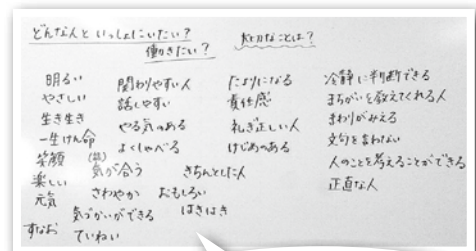 どんな人といっしょにいたい？
働きたい？
大切なことは？
明るい
やさしい
生き生き
一生けん命
笑顔
楽しい
元気
すなお
関わりやすい人
話しやすい
やる気のある
よくしゃべる
(話)
気が合う
さわやか
気づかいができる
ていねい
きちんとした人
おもしろい
はきはき
たよりになる
責任感
礼ぎ正しい人
けじめのある
冷静に判断できる
まちがいを教えてくれる人
まわりがみえる
文句を言わない
人のことを考えることができる
正直な人